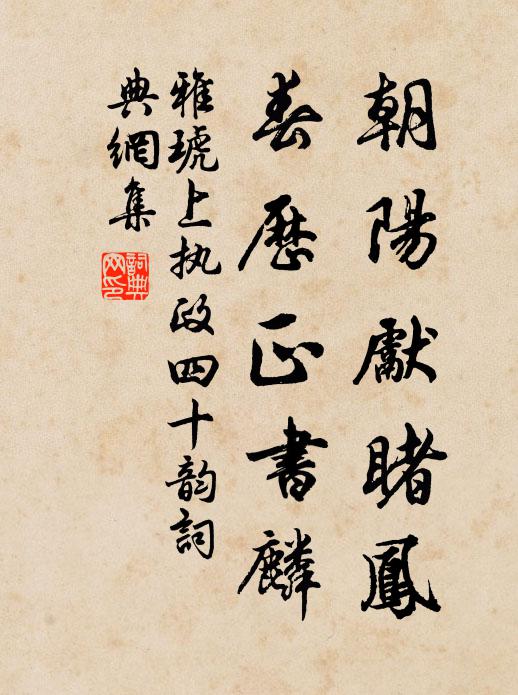 朝陽獻睹鳳
春歷正書麟
雅琥上执政四十韵詞
典網集
詞典網印